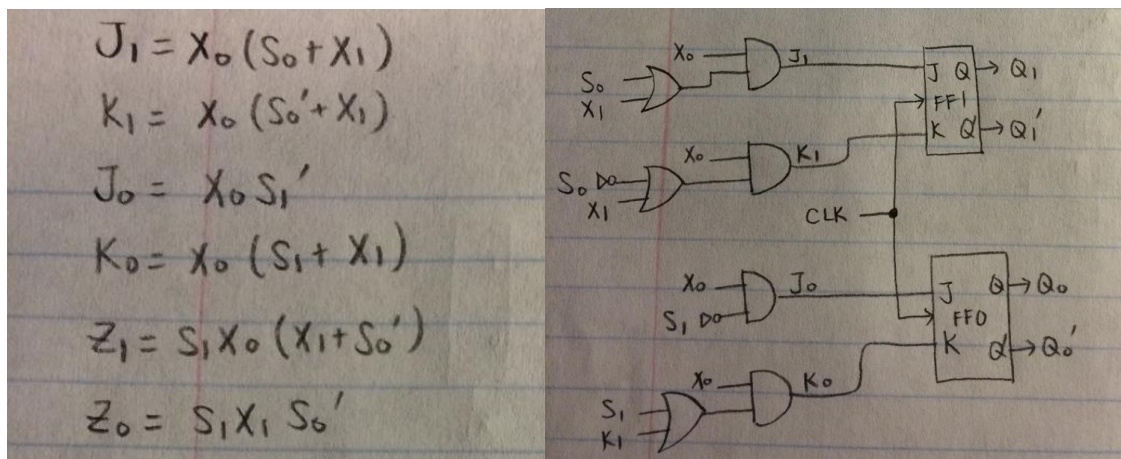 J₁ = X₀ (S₀ + X₁)
K₁ = X₀ (S₀' + X₁)
J₀ = X₀ S₁'
K₀ = X₀ (S₁ + X₁)
Z₁ = S₁X₀ (X₁ + S₀')
Z₀ = S₁X₁ S₀'
X₀
J₁
S₀
X₁
J Q → Q₁
FF1
K Q' → Q₁'
X₀
K₁
S₀
X₁
CLK
X₀
J₀
S₁
J Q → Q₀
FF0
K Q' → Q₀'
X₀
K₀
S₁
K₁